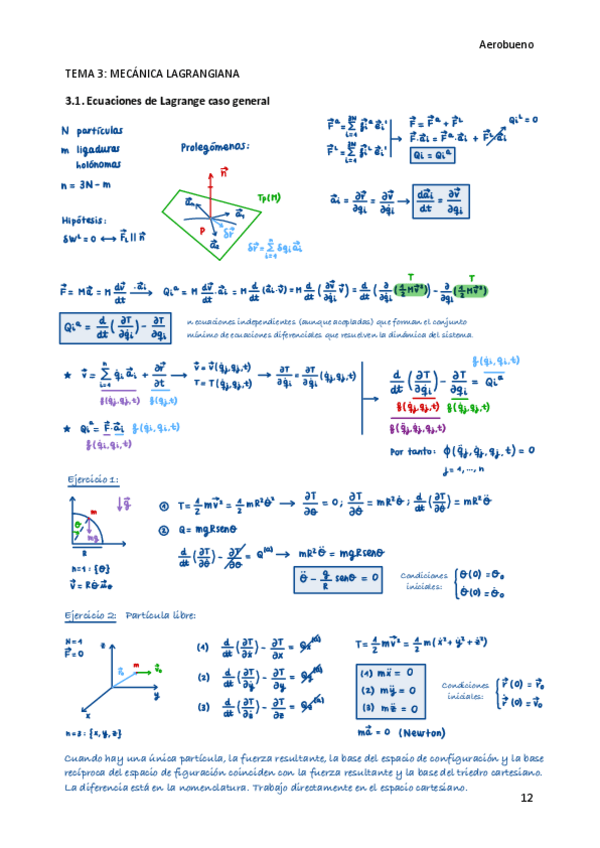 Aerobueno
TEMA 3: MECÁNICA LAGRANGIANA
3.1. Ecuaciones de Lagrange caso general
N partículas
m ligaduras
holónomas
n = 3N - m
Hipótesis:
δWᴸ = 0 ⟷ F⃗ʟ ∥ n⃗
Prolegómenos:
n⃗
Tp(M)
a⃗₁
a⃗₂
P
δr⃗
δr⃗ = Σ δqi a⃗i
F⃗ = F⃗ᵃ + F⃗ᴸ
Qiᴸ = 0
F⃗·a⃗i = F⃗ᵃ·a⃗i + F⃗ᴸ·a⃗i
Qi = Qiᵃ
a⃗i = ∂r⃗/∂qi = ∂v⃗/∂q̇i → da⃗i/dt = ∂v⃗/∂qi
F⃗ = Ma⃗ = M dv⃗/dt ·a⃗i → Qiᵃ = M dv⃗/dt a⃗i = M d/dt (a⃗i·v⃗) - M d/dt (∂r⃗/∂qi) v⃗ = d/dt (∂/∂q̇i (1/2 Mv⃗²)) - ∂/∂qi (1/2 Mv⃗²)
T T
Qiᵃ = d/dt (∂T/∂q̇i) - ∂T/∂qi
n ecuaciones independientes (aunque acopladas) que forman el conjunto
mínimo de ecuaciones diferenciales que resuelven la dinámica del sistema.
★ v⃗ = Σ q̇i a⃗i + ∂r⃗/∂t → v⃗ = v⃗(q̇j,qj,t) T = T(q̇j,qj,t) → ∂T/∂q̇i = ∂T/∂q̇i (q̇j,qj,t)
f(q̇j,qj,t) f(qj,t)
★ Qiᵃ = F⃗·a⃗i f(qi,t)
f(q̇i,qi,t)
d/dt (∂T/∂q̇i) - ∂T/∂qi = Qiᵃ
f(q̇i,qi,t)
f(q̇j,qj,t) f(q̇j,qj,t)
f(q̈j,q̇j,qj,t)
Por tanto: ϕ(q̈j, q̇j, qj, t) = 0
j = 1, ..., n
Ejercicio 1:
↓g⃗
θ m
mg
R
n=1 : {θ}
v⃗ = Rθ̇ u⃗θ
① T = 1/2 mv⃗² = 1/2 mR²θ̇² → ∂T/∂θ = 0 ; ∂T/∂θ̇ = mR²θ̇ ; d/dt (∂T/∂θ̇) = mR²θ̈
② Q = mgRsenθ
d/dt (∂T/∂θ̇) - ∂T/∂θ = Q⁽ᵃ⁾ → mR²θ̈ = mgRsenθ
θ̈ - g/R senθ = 0
Condiciones
iniciales:
θ(0) = θ₀
θ̇(0) = θ̇₀
Ejercicio 2: Partícula libre:
N=1
F⃗=0
z
m
r⃗₀
v⃗₀
y
x
n=3 : {x, y, z}
(1) d/dt (∂T/∂ẋ) - ∂T/∂x = Qx⁽ᵃ⁾
(2) d/dt (∂T/∂ẏ) - ∂T/∂y = Qy⁽ᵃ⁾
(3) d/dt (∂T/∂ż) - ∂T/∂z = Qz⁽ᵃ⁾
T = 1/2 mv⃗² = 1/2 m(ẋ² + ẏ² + ż²)
(1) mẍ = 0
(2) mÿ = 0
(3) mz̈ = 0
Condiciones
iniciales:
r⃗(0) = r⃗₀
ṙ⃗(0) = v⃗₀
ma⃗ = 0 (Newton)
Cuando hay una única partícula, la fuerza resultante, la base del espacio de configuración y la base
recíproca del espacio de figuración coinciden con la fuerza resultante y la base del triedro cartesiano.
La diferencia está en la nomenclatura. Trabajo directamente en el espacio cartesiano.
12